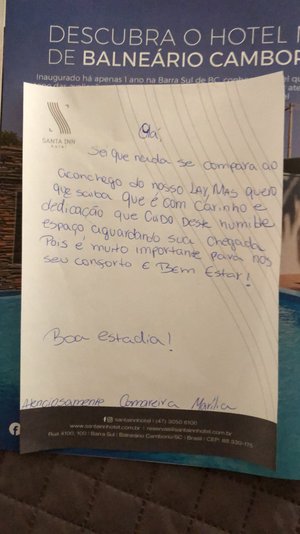 DESCUBRA O HOTEL
DE BALNEÁRIO CAMBOR
Inaugurado há apenas 1 ano na Barra Sul de BC,
SANTA INN
HOTEL
Olá,
Sei que nada se compara ao
aconchego do nosso LAR, MAS quero
que saiba que é com carinho e
dedicação que CUIDO Deste humilde
espaço, aguardando sua chegada
Pois é muito importante para nós
seu conforto e BEM Estar!
Boa estadia!
Atenciosamente Camareira Marília
santainnhotel | (47) 3050 6100
www.santainnhotel.com.br | reservas@santainnhotel.com.br
Rua 4100, 100 | Barra Sul | Balneário Camboriú/SC | Brasil | CEP: 88.330-175